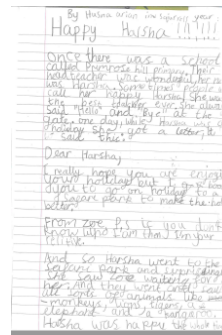 By Harsha
Happy Harsha !!!!!!
Once there was a school
called Primrose hill primary. Their
headteacher was wonderful her name
was Harsha. Some times people
call her happy Harsha. She was
the best
said hello and bye at the
gate. one day, while Harsha was on
holiday she got a letter, it
said this:
Dear Harsha,
I really hope you are enjoying
your holiday but
you to go on holiday to a
safari park to make the
better.
From Zoe P.s if you don't
know who I am then I'm your
relative.
And so Harsha went to the
safari park and surprisingly
she saw zoe waiting for
her. And they went and saw
all sorts of animals like
monkeys, lions, tigers,
elephant and a kangaroo.
Harsha was happy the whole